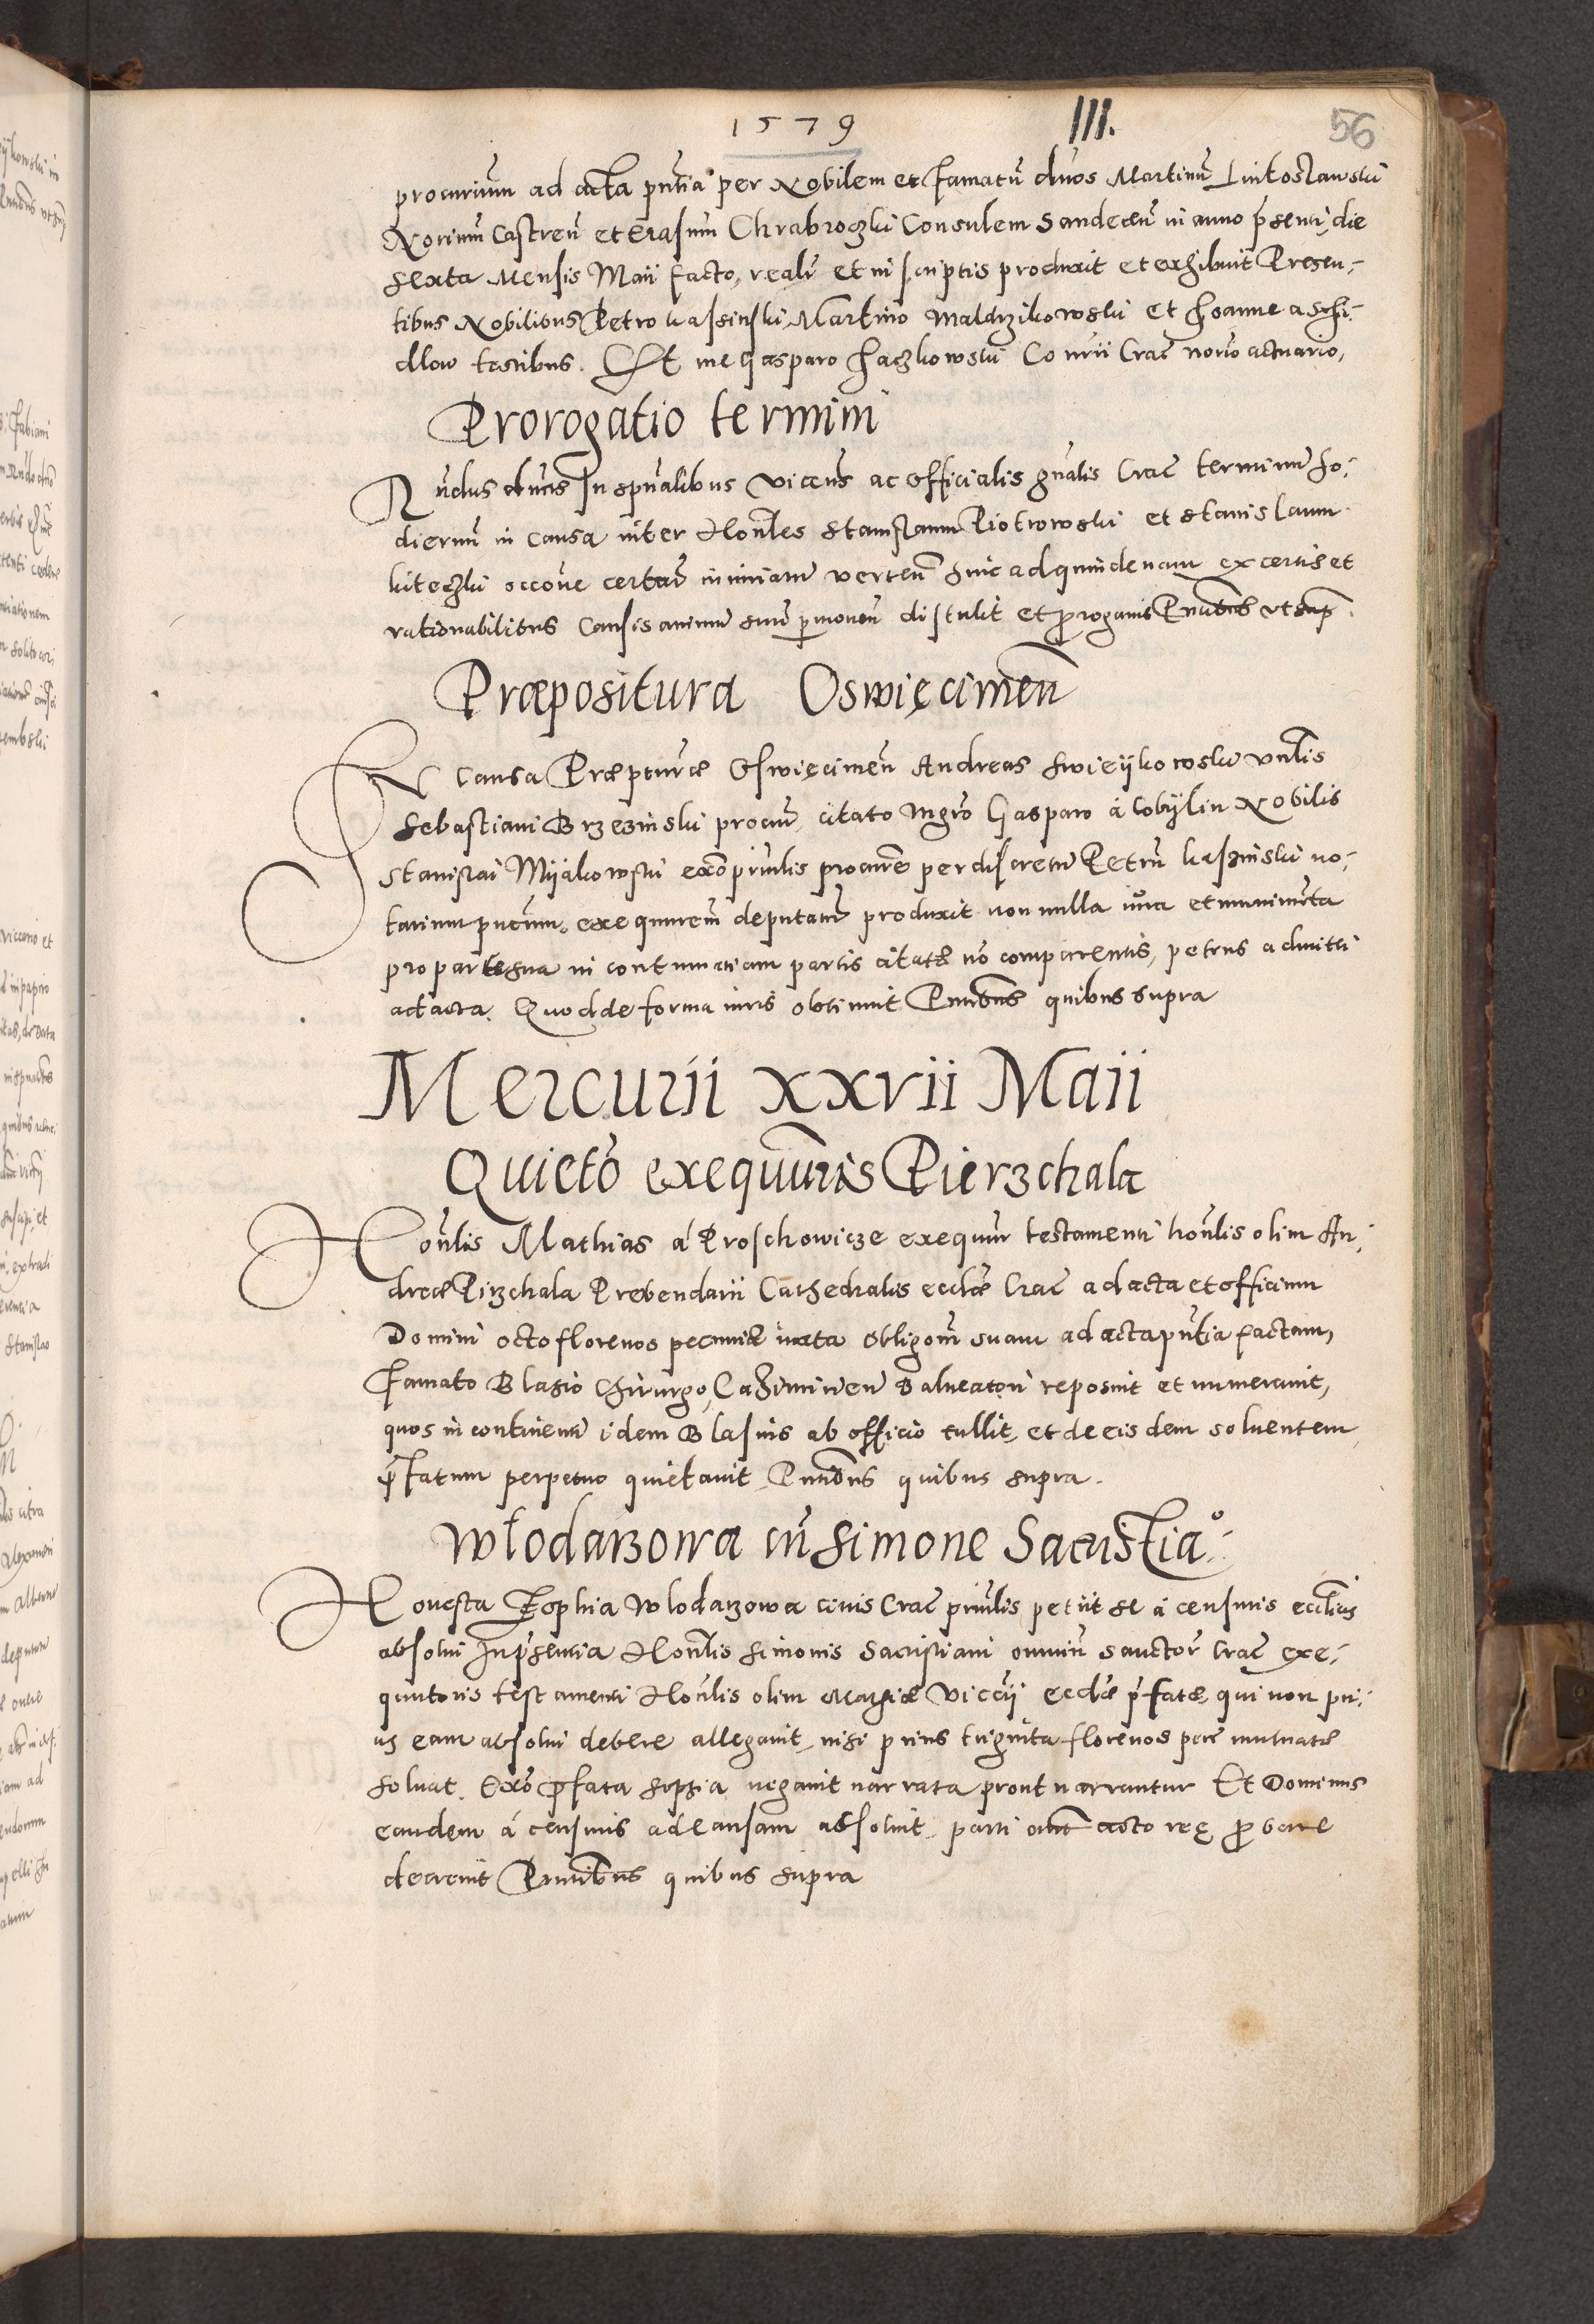 1579 III. 56
procurium ad acta pntia per Nobilem et Famatu duos Martinu Linkoslawski
Notium Castren et Erasmu Chrabroczki Consulem Sandecen in anno psenti die
sexta Mensis Maii facto, reali et in scriptis produxit et exhibuit Presen-
tibus Nobilibus Petro Kassinski Martino Maldrzikowski et Joanne a Schi-
dlow testibus. Et me Gasparo Jaczkowski Conrii Crac norio actuario,
Prorogatio termini
Rndus dnus In spualibus Vicens ac officialis gnalis Crac terminu ho-
diernu in causa inter Honles Stanislaum Piotrowski et Stanislaum
occone certar iniuriaru verten hinc ad quindenam ex certis et
rationabilibus causis animu suu pmouen distulit et progauit Pnntibus ut sup.
Præpositura Oswięcimen
IN causa Præpturæ Oswięcimen Andreas Swieijkowski Vnlis
Sebastiani Brzezinski procur, citato Mgro Gasparo à Cobijlin Nobilis
Stanislai Mijakowski exo priulis procure per discretu Petru Kassinski no-
tarium pucum, exequurem deputatu produxit non nulla iura et munimta
pro parte sua in contumaciam partis citatæ no comparentis, petens admitti
ad acta. Quod de forma iuris obtinuit Pnntibus quibus supra
Mercurii xxvii Maii
Quieto exequuris Pierzchala
Honlis Mathias à Proschowicze exequur testamenti honlis olim An-
dreæ Pirzchala Prebendarii Cathedralis ecclæ Crac ad acta et officium
Domini octo florenos pecuniæ iuxta obligom suam ad acta pntia factam,
Famato Blasio Chirurgo, Cazimirien Balneatori reposuit et numerauit,
quos in continenti idem Blasius ab officio tullit, et de eisdem soluentem
pfatum perpetuo quietauit Pnntibus quibus supra.
Włodarzowa cu Simone Sacristia
Honesta Zophia Wlodarzowa ciuis Crac priulis petiit se à censuris ecclicis
absolui In psentia Honlis Simonis Sacristiani omniu sanctor Crac exe-
quutoris testamenti Honlis olim Vicarij ecclæ pfatæ, qui non pri-
us eam absolui debere allegauit, nisi prius triginta florenos pecc mutuatæ
soluat. Exo pfata Sophia negauit narrata prout narrantur Et Dominus
eandem à censuris ad causam absoluit, parti aut actoreę probare
decreuit Pnntibus quibus supra